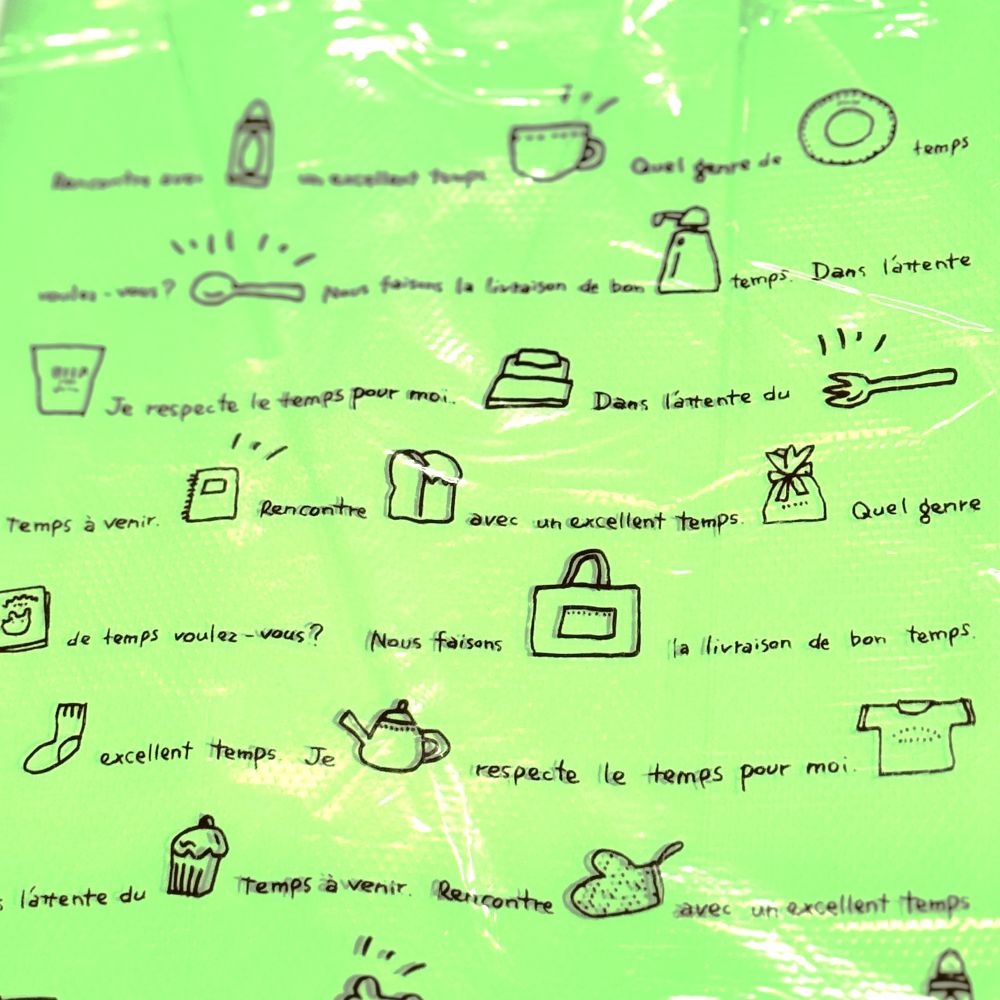 Rencontre avec un excellent temps Quel genre de temps
voulez-vous? Nous faisons la livraison de bon temps. Dans l'attente
Je respecte le temps pour moi. Dans l'attente du
Temps à venir. Rencontre avec un excellent temps. Quel genre
de temps voulez-vous? Nous faisons la livraison de bon temps.
excellent temps. Je respecte le temps pour moi.
s l'attente du Temps à venir. Rencontre avec un excellent temps